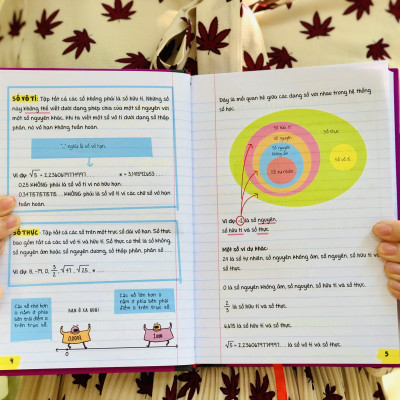 SỐ VÔ TỈ: Tập tất cả các số không phải là số hữu tỉ. Những số
này không thể viết dưới dạng phép chia của một số nguyên với
một số nguyên khác. Khi ta viết một số vô tỉ dưới dạng số thập
phân, nó vô hạn không tuần hoàn.
"..." nghĩa là số vô hạn.
Ví dụ: √5 = 2,2360679774997...
0,25 KHÔNG phải là số vô tỉ vì nó hữu hạn.
KHÔNG phải là số vô tỉ vì các chữ số vô hạn
tuần hoàn.
SỐ THỰC: Tập tất cả các số trên một trục số dài vô hạn. Số thực
bao gồm tất cả các số vô tỉ và hữu tỉ. Số thực có thể là số không,
số nguyên âm hoặc số nguyên dương, số thập phân, phân số ...
Ví dụ: 8, -19, 0, 3/2, √47, √25, π ...
Các số nhỏ hơn
0 nằm ở phía bên
trái điểm 0
trên trục số.
Các số lớn hơn
0 nằm ở phía bên
phải điểm 0 trên
trục số.
0
4
Đây là mối quan hệ giữa các dạng số với nhau trong hệ thống
số học:
Số hữu tỉ
Số thực
Số nguyên
Số nguyên
không âm
Số tự nhiên
Số vô tỉ
Ví dụ: -2 là số nguyên,
số hữu tỉ và số thực.
Một số ví dụ khác:
24 là số tự nhiên, số nguyên không âm, số nguyên, số hữu tỉ và
số thực.
0 là số nguyên không âm, số nguyên, số hữu tỉ và số thực.
2/3 là số hữu tỉ và số thực.
là số hữu tỉ và số thực.
√5 = 2,2360679774997... là số vô tỉ và số thực.
5